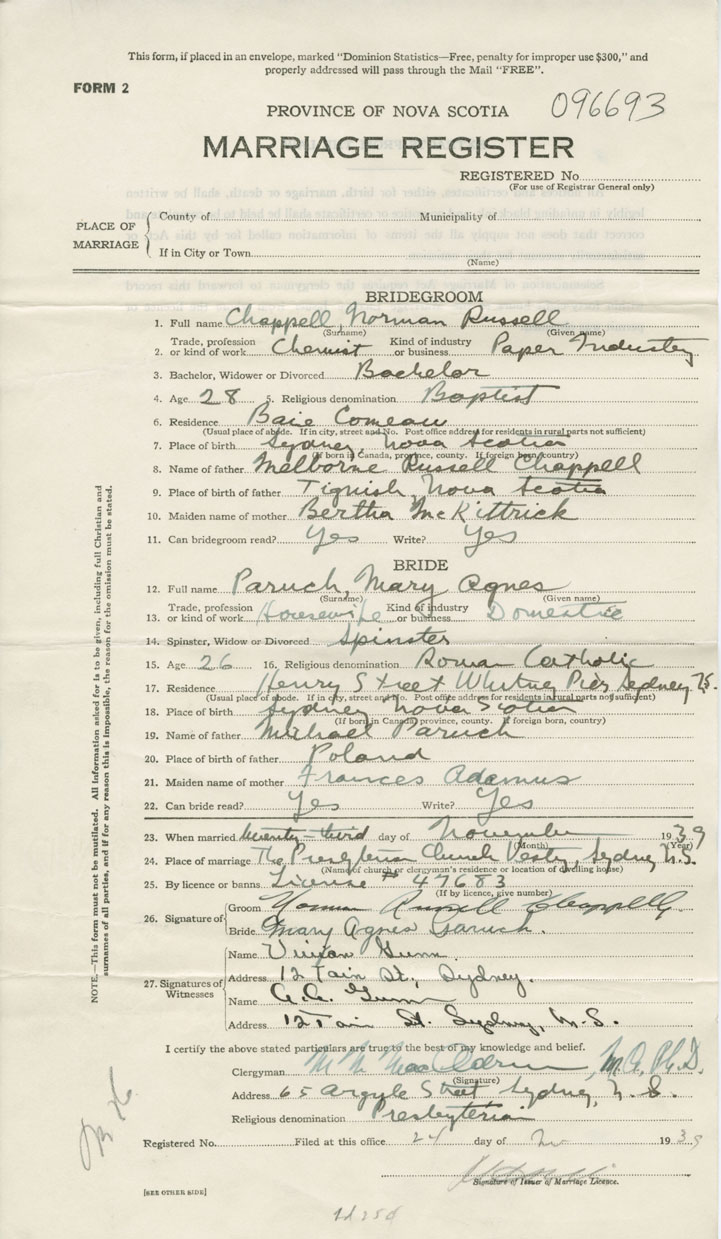 This form, if placed in an envelope, marked "Dominion Statistics—Free, penalty for improper use $300," and
properly addressed will pass through the Mail "FREE".
FORM 2
PROVINCE OF NOVA SCOTIA 096693
MARRIAGE REGISTER
REGISTERED No.
(For use of Registrar General only)
PLACE OF MARRIAGE
County of Municipality of
If in City or Town
(Name)
BRIDEGROOM
1. Full name Chappell, Norman Russell
(Surname) (Given name)
2. Trade, profession or kind of work Chemist Kind of industry or business Paper Industry
3. Bachelor, Widower or Divorced Bachelor
4. Age 28 5. Religious denomination Baptist
6. Residence Baie Comeau
(Usual place of abode. If in city, street and No. Post office address for residents in rural parts not sufficient)
7. Place of birth Sydney Nova Scotia
(If born in Canada, province, county. If foreign born, country)
8. Name of father Melborne Russell Chappell
9. Place of birth of father Tignish, Nova Scotia
10. Maiden name of mother Bertha McKittrick
11. Can bridegroom read? Yes Write? Yes
BRIDE
12. Full name Paruch, Mary Agnes
(Surname) (Given name)
13. Trade, profession or kind of work Housewife Kind of industry or business Domestic
14. Spinster, Widow or Divorced Spinster
15. Age 26 16. Religious denomination Roman Catholic
17. Residence Henry Street Whitney Pier Sydney N.S.
(Usual place of abode. If in city, street and No. Post office address for residents in rural parts not sufficient)
18. Place of birth Sydney Nova Scotia
(If born in Canada, province, county. If foreign born, country)
19. Name of father Michael Paruch
20. Place of birth of father Poland
21. Maiden name of mother Frances Adamus
22. Can bride read? Yes Write? Yes
23. When married twenty-third day of November 1939
(Month) (Year)
24. Place of marriage The Presbyterian Church Vestry, Sydney N.S.
(Name of church or clergyman's residence or location of dwelling house)
25. By licence or banns License # 47683
(If by licence, give number)
26. Signature of
Groom Norman Russell Chappell
Bride Mary Agnes Paruch.
27. Signatures of Witnesses
Name Vivian Gunn.
Address 12 Tain St., Sydney.
Name Gunn
Address 12 Tain St. Sydney, N.S.
I certify the above stated particulars are true to the best of my knowledge and belief.
Clergyman M.A. Ph.D.
(Signature)
Address 65 Argyle Street Sydney, N.S.
Religious denomination Presbyterian
Registered No. Filed at this office 24 day of 1939
Signature of Issuer of Marriage Licence.
[SEE OTHER SIDE]
NOTE.—This form must not be mutilated. All Information asked for is to be given, including full Christian and
surnames of all parties, and if for any reason this is impossible, the reason for the omission must be stated.